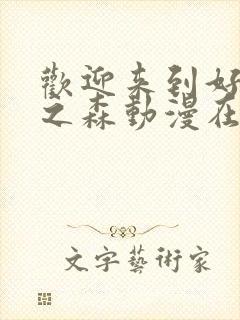 歡迎来到好
之森動漫在
文字藝術家